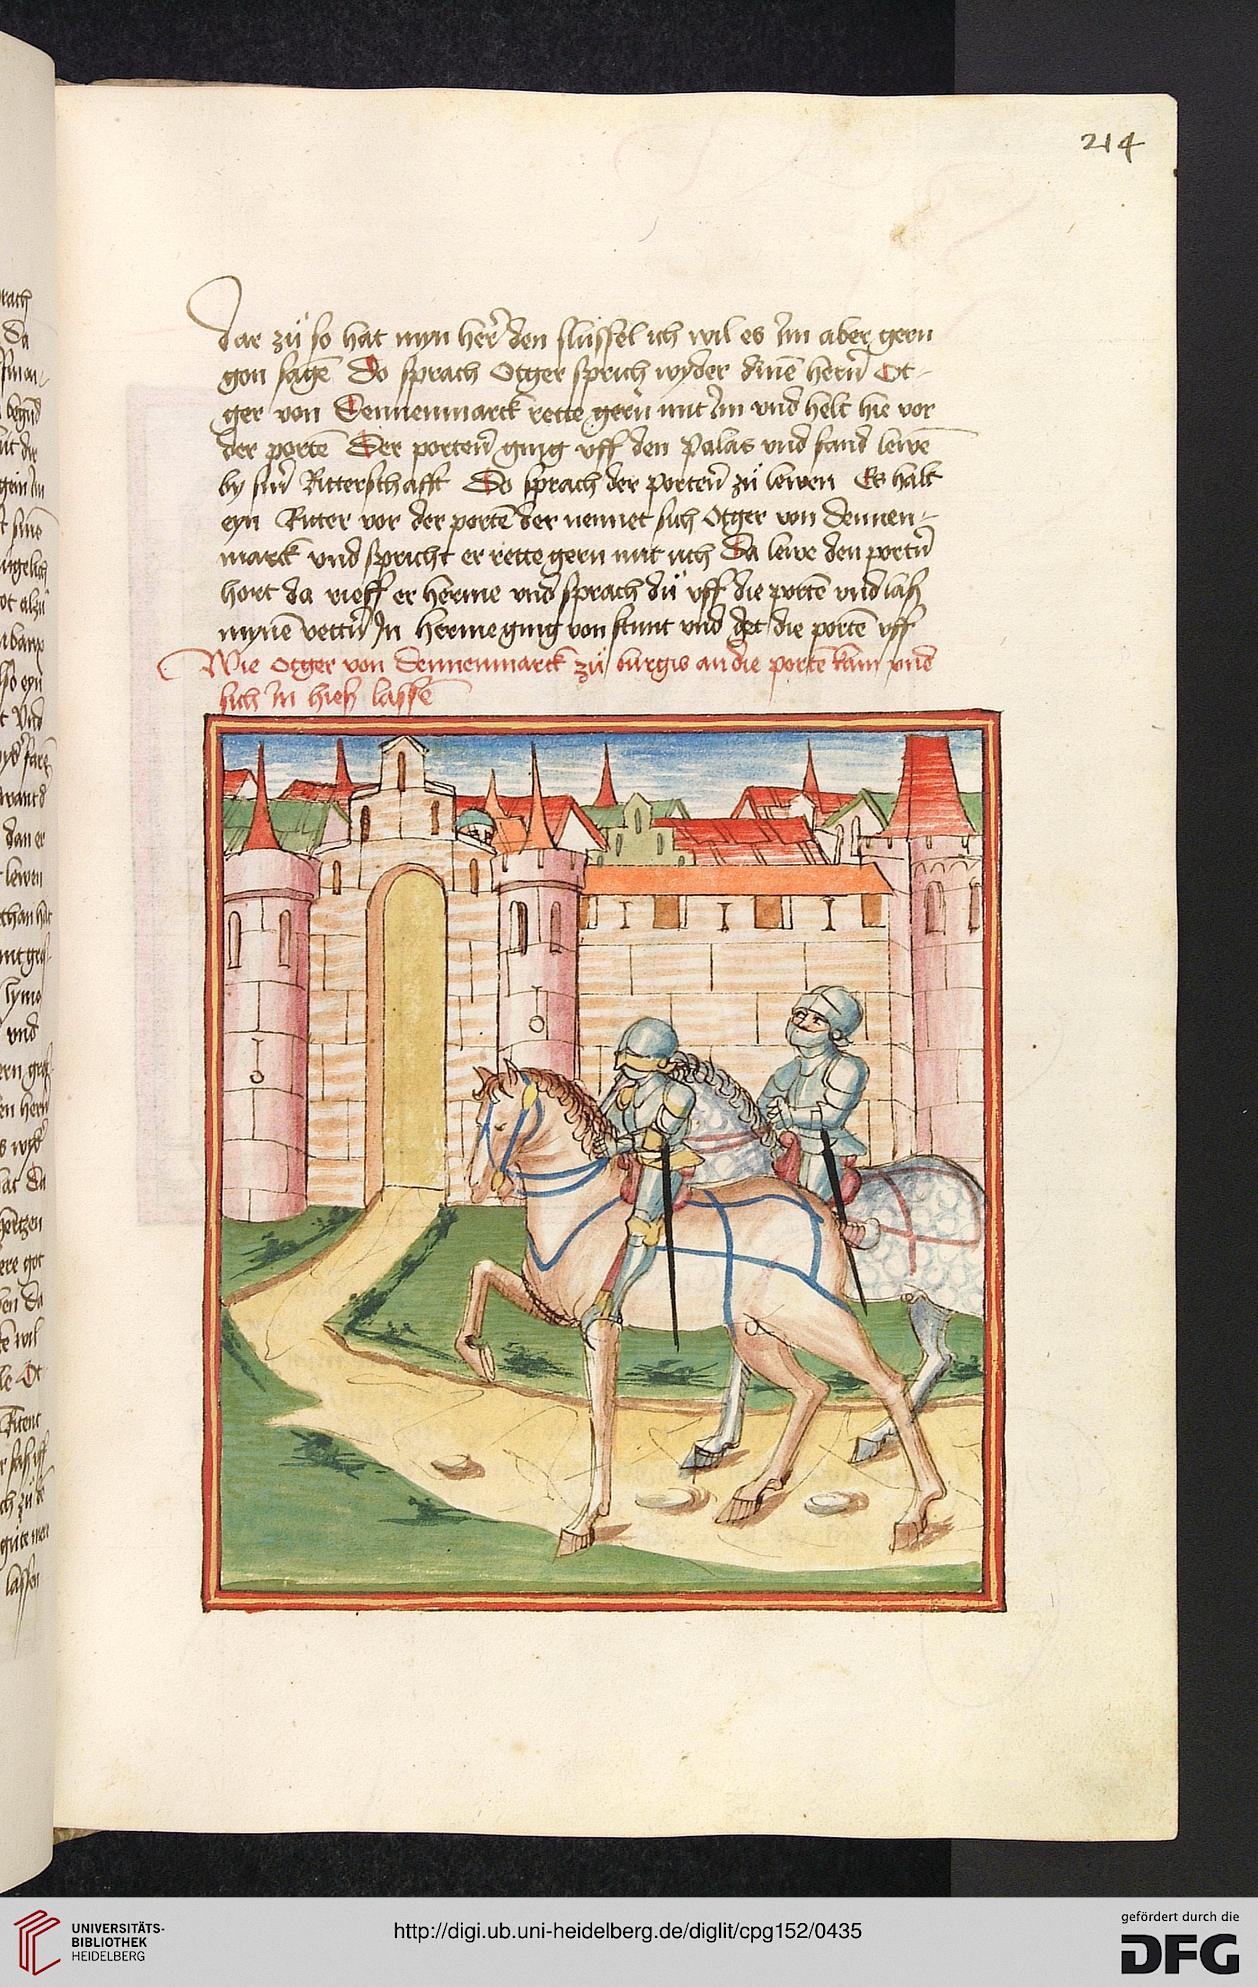 214
dar zů so hat myn her̄ den slüssel ich wil es Im aber gern
gon sagē Do sprach Otger sprich wyder dinē hern̄ Ot-
ger von Dennenmarck rette gern̄ mit Im vnd helt hie vor
der portē Der porten̄ ging vff den Palas vnd fand lewē
by sin̄ Ritterschafft Do sprach der porten̄ zů lewen Es halt
eyn Ritter vor der portē der nennet sich Otger von dennen-
marck vnd spricht er rette gern mit uch Da lewe den portn̄
hort da rieff er herme vnd sprach dů vff die portē vnd laß
mynē vettn̄ In herme ging von stunt vnd det die portē vff
Wie otger von dennenmarck zů burgis an die portē kam vnd
sich In hieß lassē
UNIVERSITÄTS-
BIBLIOTHEK
HEIDELBERG
http://digi.ub.uni-heidelberg.de/diglit/cpg152/0435
gefördert durch die
DFG